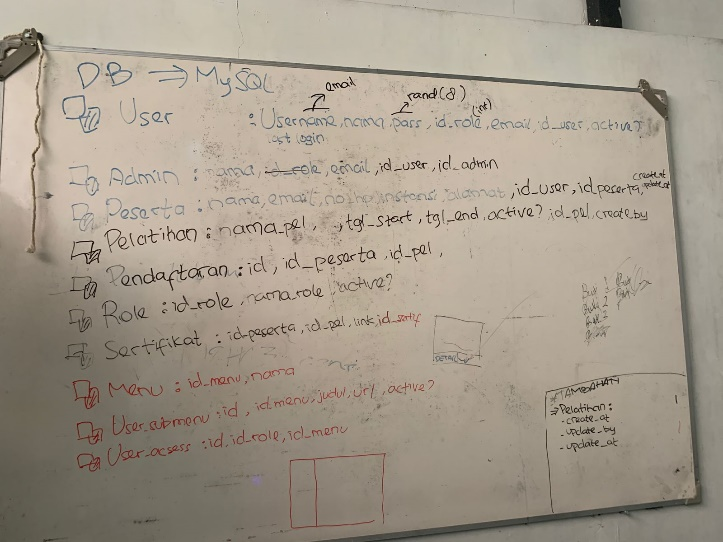 DB ⇒ MySQL
email
rand(8)
(int)
User : Username, nama, pass, id_role, email, id_user, active?
last login
Admin : nama, id_role, email, id_user, id_admin
create_at
Peserta : nama, email, no hp, instansi, alamat, id_user, id_peserta, update_at
Pelatihan : nama_pel, , tgl_start, tgl_end, active?, id_pel, create_by
Pendaftaran : id, id_peserta, id_pel,
Role : id_role, nama_role, active?
Sertifikat : id_peserta, id_pel, link, id_sertif
DETAIL
Menu : id_menu, nama
User_submenu : id, id_menu, judul, url, active?
User_acsess : id, id_role, id_menu
TAMBAHAN
⇒ Pelatihan :
- create_at
- update_by
- update_at